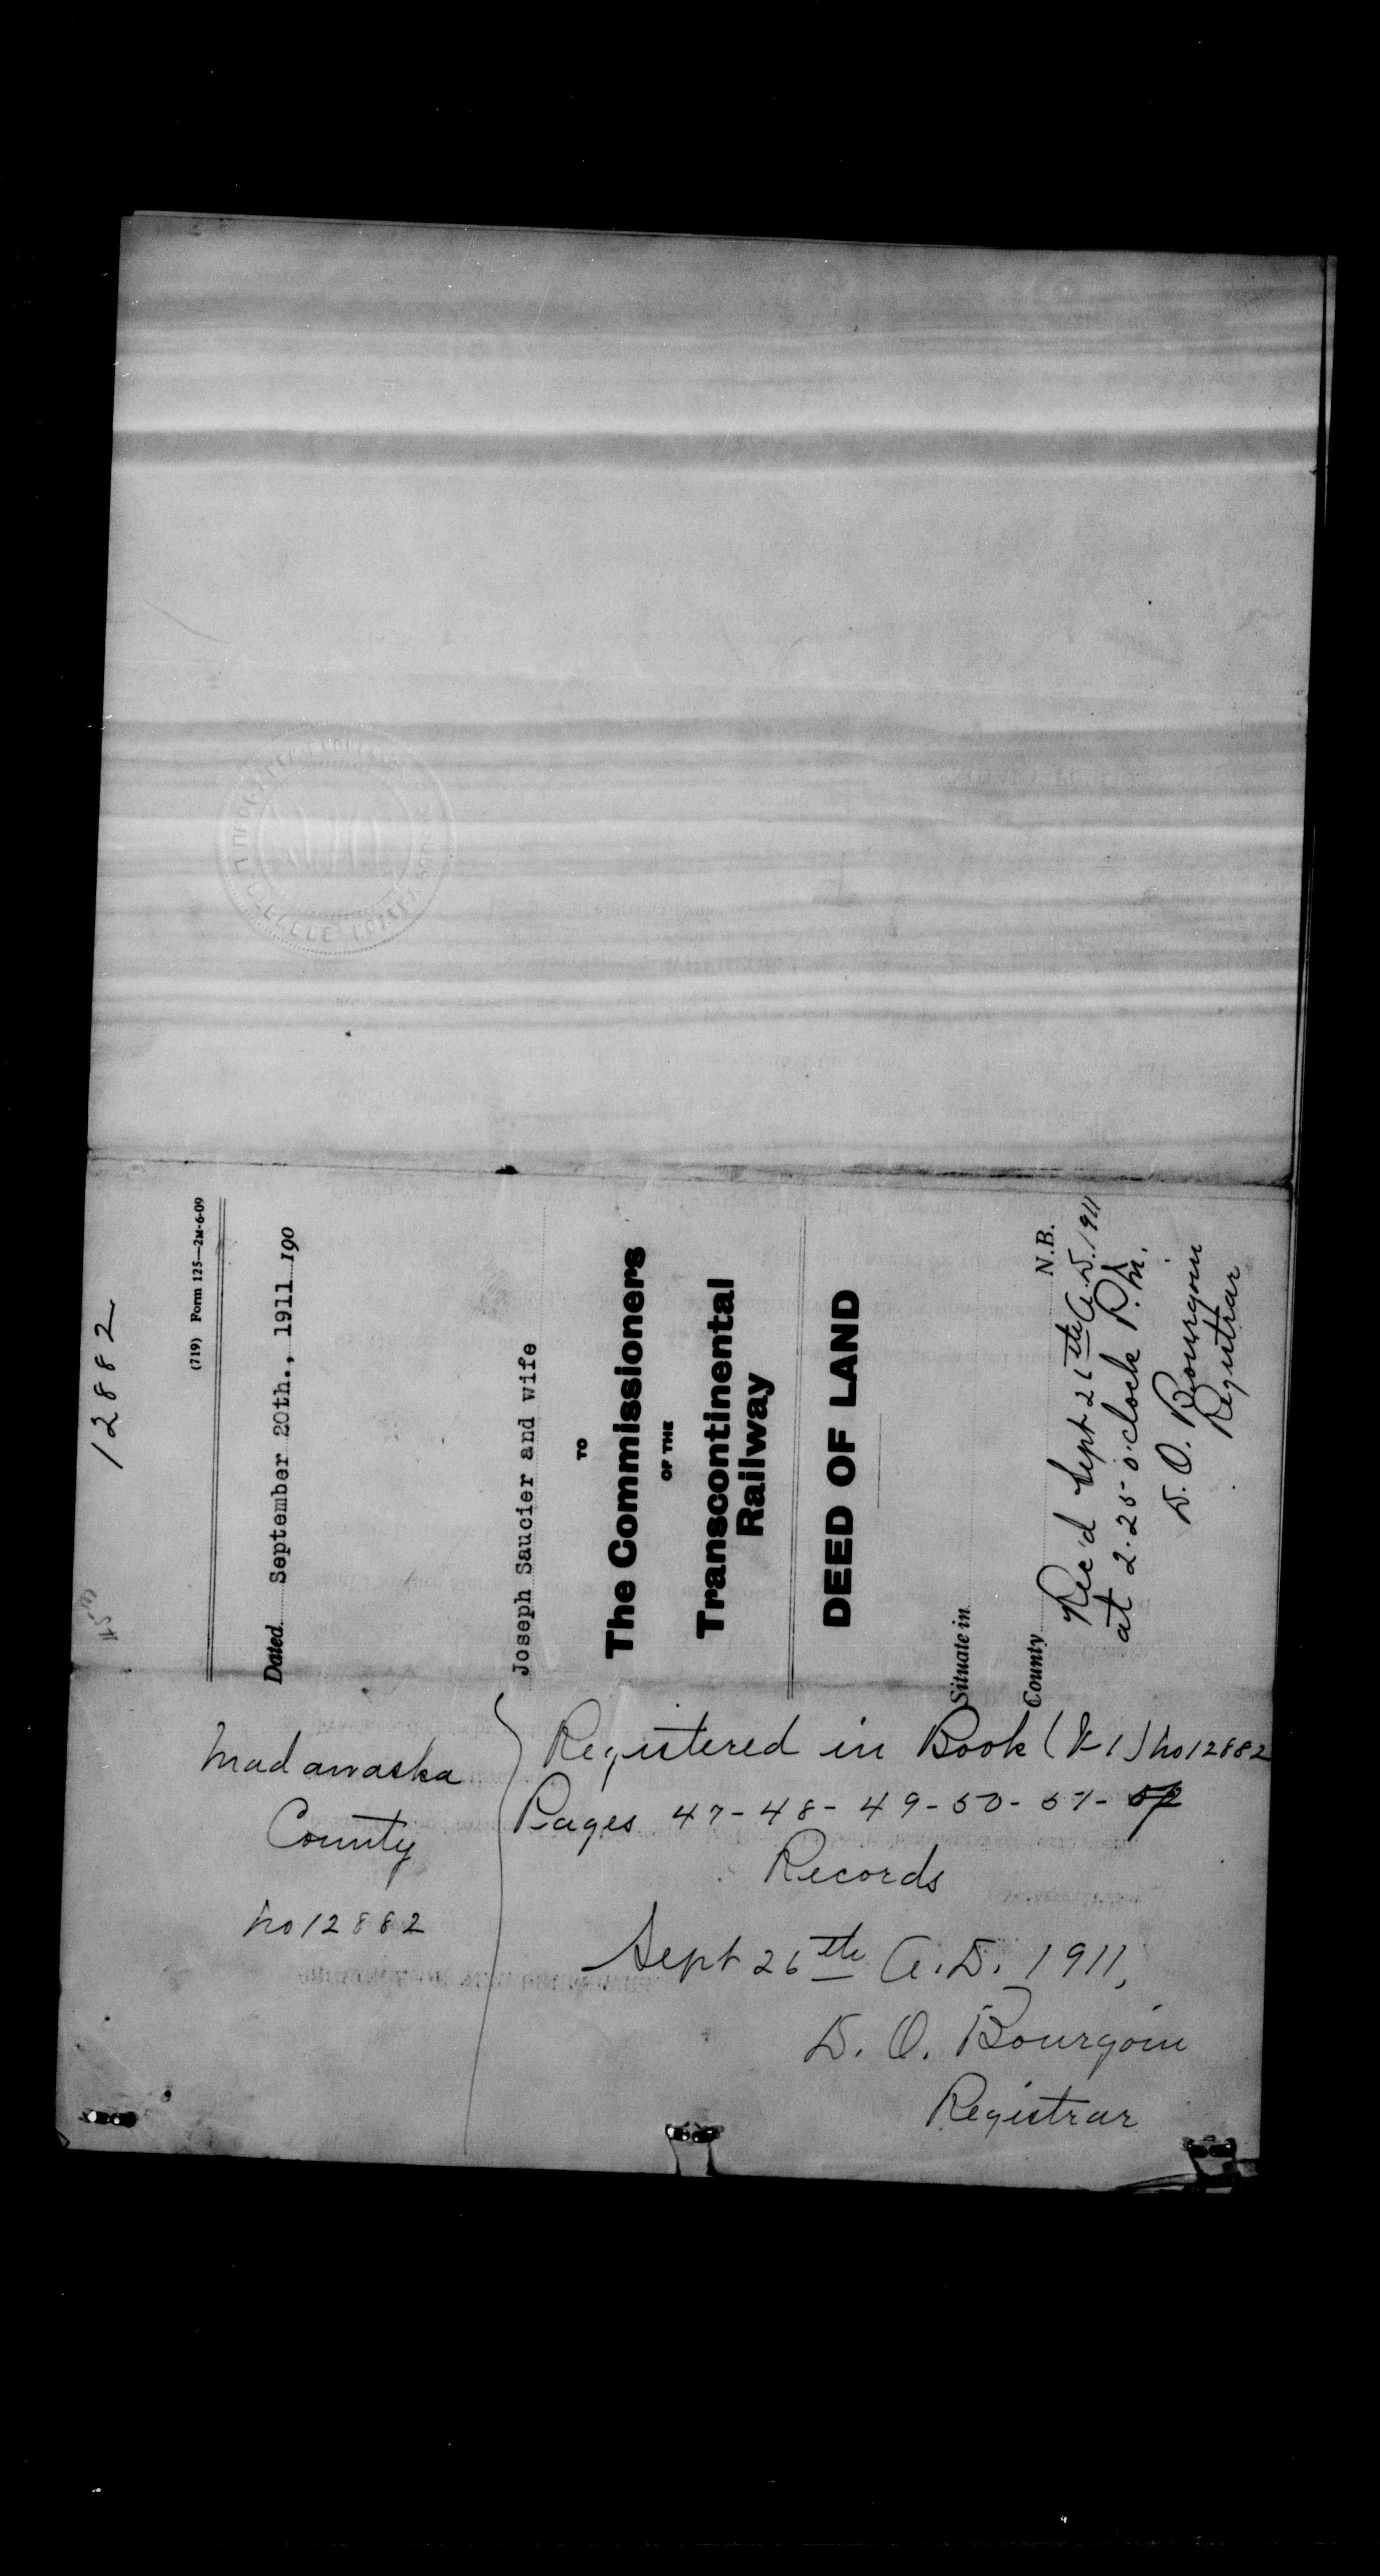 12882
(719) Form 125—2M-6-09
Dated September 20th., 1911 190
Joseph Saucier and wife
TO
The Commissioners
OF THE
Transcontinental
Railway
DEED OF LAND
Situate in
County N.B.
Rec'd Sept 26th A.D. 1911
at 2.25 o'clock P.M.
D. O. Bourgoin
Registrar
Madawaska
County
No 12882
Registered in Book ( 1) No 12882
Pages 47-48-49-50-51-52
Records
Sept 26th A.D. 1911,
D. O. Bourgoin
Registrar